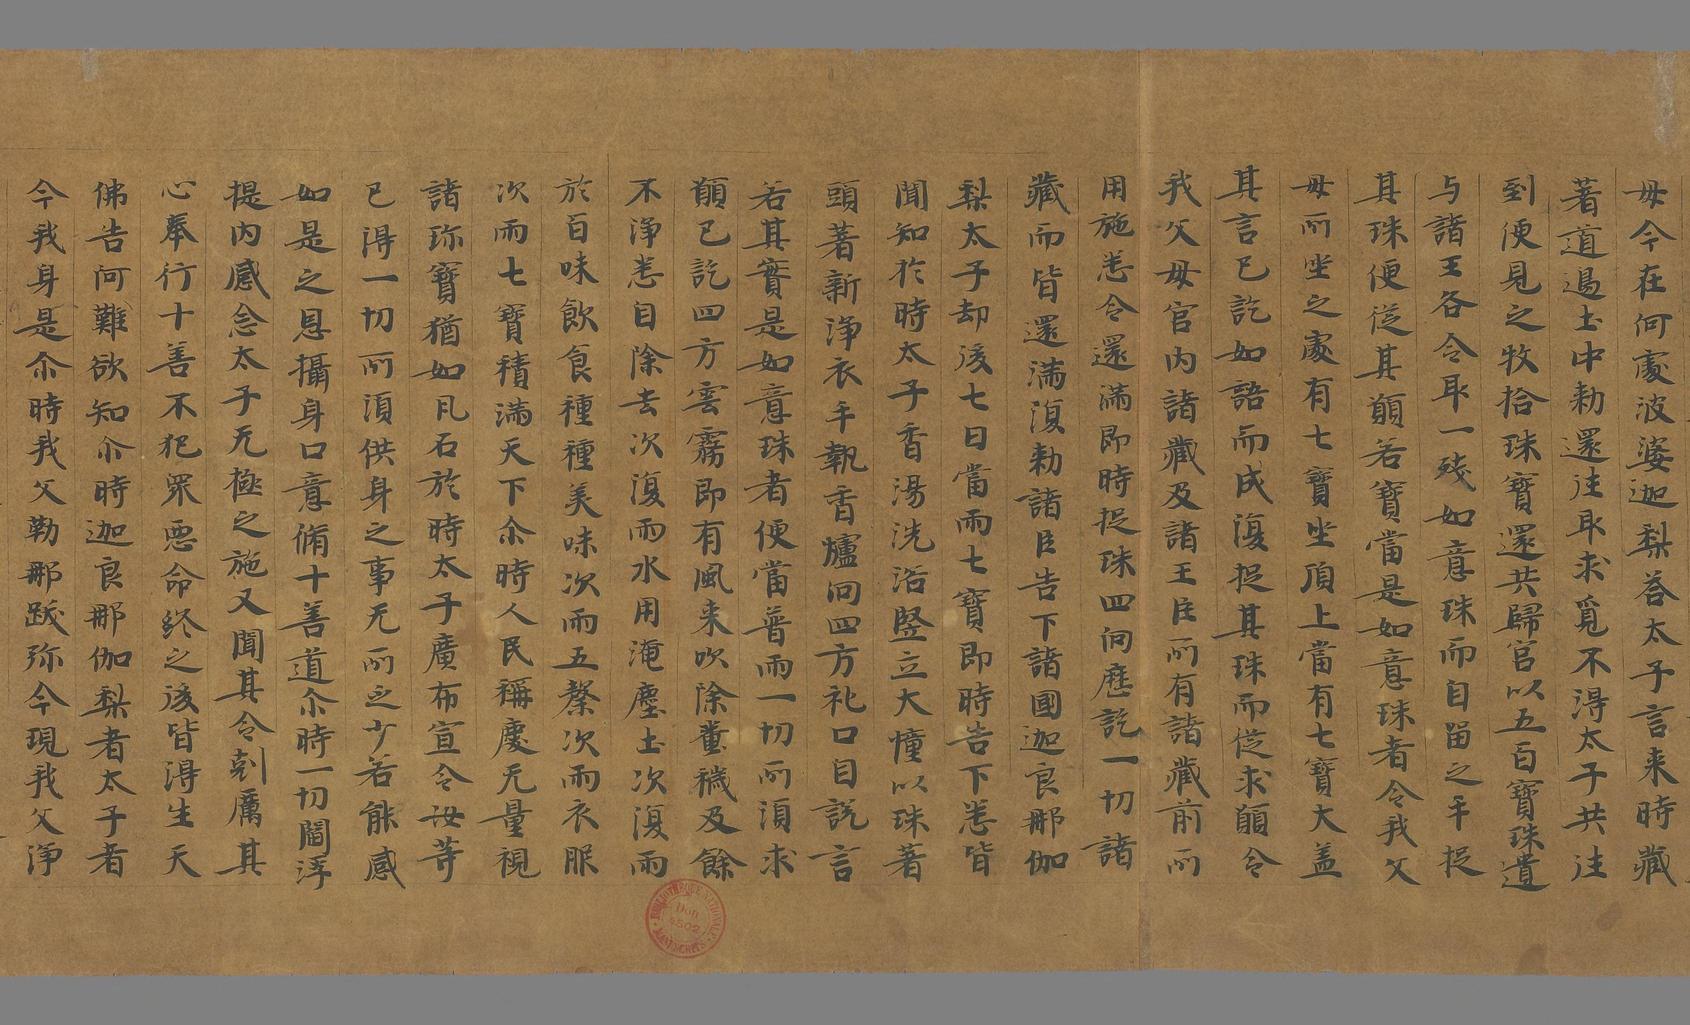 毋今在何處波婆迦梨荅太子言来時藏
著道邊土中勑還往取求覓不得太子共往
到便見之收拾珠寶還共歸宮以五百寶珠遺
与諸王各令取一殘如意珠而自留之手捉
其珠便從其願若寶當是如意珠者令我父
毋所坐之處有七寶坐頂上當有七寶大盖
其言已訖如語而成復捉其珠而從求願令
我父毋宮内諸藏及諸王臣所有諸藏前所
用施悉令還滿即時捉珠四向歷訖一切諸
藏而皆還滿復勑諸臣告下諸國迦良那伽
梨太子却後七日當雨七寶即時告下悉皆
聞知於時太子香湯洗浴竪立大幢以珠著
頭著新淨衣手執香爐向四方礼口自說言
若其實是如意珠者便當普雨一切所須求
願已訖四方雲霧即有風来吹除糞穢及餘
不淨悉自除去次復雨水用淹塵土次復雨
於百味飲食種種美味次雨五糓次雨衣服
次雨七寶積滿天下尒時人民稱慶无量視
諸珎寶猶如凡石於時太子廣布宣令汝等
已得一切所須供身之事无所乏少若能感
如是之恩攝身口意脩十善道尒時一切閻浮
提内感念太子无極之施又聞其令剋厲其
心奉行十善不犯眾惡命終之後皆得生天
佛告阿難欲知尒時迦良那伽梨者太子者
今我身是尒時我父勒那跋弥今現我父淨
BIBLIOTHÈQUE NATIONALE
Don
4502
MANUSCRITS